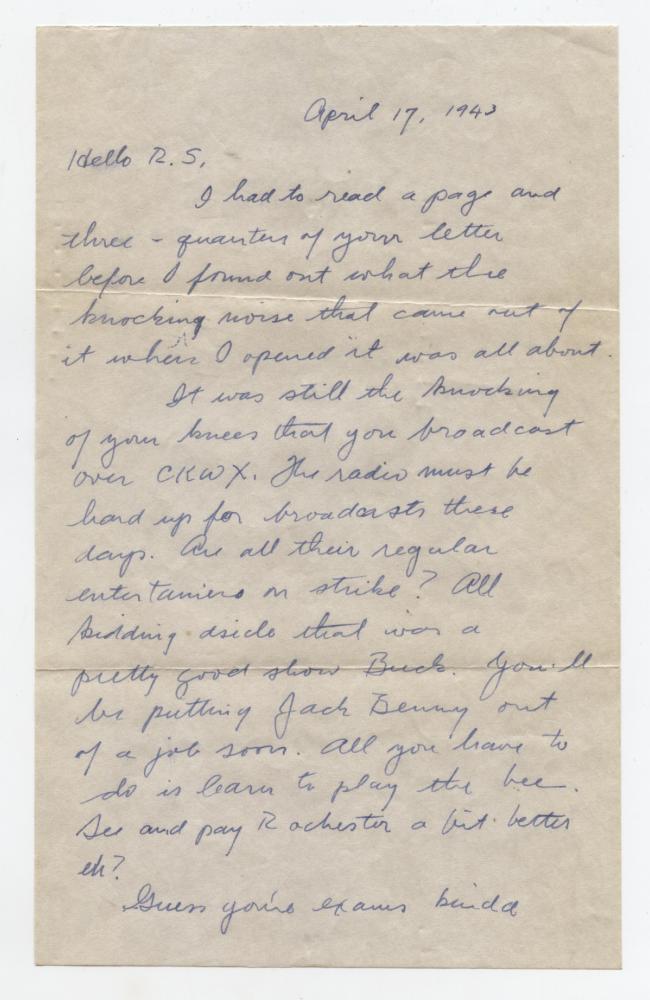 April 17, 1943
Hello R. S,
I had to read a page and
three-quarters of your letter
before I found out what the
knocking noise that came out of
it when I opened it was all about.
It was still the knocking
of your knees that you broadcast
over CKWX. The radio must be
hard up for broadcasts these
days. Are all their regular
entertainers on strike? All
kidding aside that was a
pretty good show Buck. You'll
be putting Jack Benny out
of a job soon. All you have to
do is learn to play the bee.
See and pay Rochester a bit better
eh?
Guess you're exams kinda